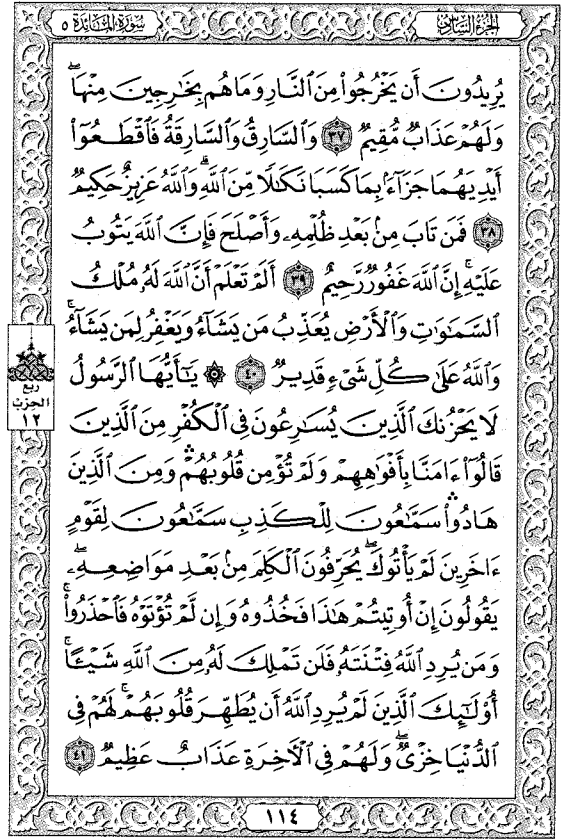 سورة المائدة ٥
الجزء السادس
يُرِيدُونَ أَن يَخْرُجُوا۟ مِنَ ٱلنَّارِ وَمَا هُم بِخَـٰرِجِينَ مِنْهَا ۖ
وَلَهُمْ عَذَابٌ مُّقِيمٌ ٣٧ وَٱلسَّارِقُ وَٱلسَّارِقَةُ فَٱقْطَعُوٓا۟
أَيْدِيَهُمَا جَزَآءًۢ بِمَا كَسَبَا نَكَـٰلًا مِّنَ ٱللَّهِ ۗ وَٱللَّهُ عَزِيزٌ حَكِيمٌ
٣٨ فَمَن تَابَ مِنۢ بَعْدِ ظُلْمِهِۦ وَأَصْلَحَ فَإِنَّ ٱللَّهَ يَتُوبُ
عَلَيْهِ ۗ إِنَّ ٱللَّهَ غَفُورٌ رَّحِيمٌ ٣٩ أَلَمْ تَعْلَمْ أَنَّ ٱللَّهَ لَهُۥ مُلْكُ
ٱلسَّمَـٰوَٰتِ وَٱلْأَرْضِ يُعَذِّبُ مَن يَشَآءُ وَيَغْفِرُ لِمَن يَشَآءُ ۗ
وَٱللَّهُ عَلَىٰ كُلِّ شَىْءٍ قَدِيرٌ ٤٠ ۞ يَـٰٓأَيُّهَا ٱلرَّسُولُ
لَا يَحْزُنكَ ٱلَّذِينَ يُسَـٰرِعُونَ فِى ٱلْكُفْرِ مِنَ ٱلَّذِينَ
قَالُوٓا۟ ءَامَنَّا بِأَفْوَٰهِهِمْ وَلَمْ تُؤْمِن قُلُوبُهُمْ ۛ وَمِنَ ٱلَّذِينَ
هَادُوا۟ ۛ سَمَّـٰعُونَ لِلْكَذِبِ سَمَّـٰعُونَ لِقَوْمٍ
ءَاخَرِينَ لَمْ يَأْتُوكَ ۖ يُحَرِّفُونَ ٱلْكَلِمَ مِنۢ بَعْدِ مَوَاضِعِهِۦ ۖ
يَقُولُونَ إِنْ أُوتِيتُمْ هَـٰذَا فَخُذُوهُ وَإِن لَّمْ تُؤْتَوْهُ فَٱحْذَرُوا۟ ۚ
وَمَن يُرِدِ ٱللَّهُ فِتْنَتَهُۥ فَلَن تَمْلِكَ لَهُۥ مِنَ ٱللَّهِ شَيْـًٔا ۚ
أُو۟لَـٰٓئِكَ ٱلَّذِينَ لَمْ يُرِدِ ٱللَّهُ أَن يُطَهِّرَ قُلُوبَهُمْ ۚ لَهُمْ فِى
ٱلدُّنْيَا خِزْىٌ ۖ وَلَهُمْ فِى ٱلْـَٔاخِرَةِ عَذَابٌ عَظِيمٌ ٤١
ربع
الحزب
١٢
١١٤